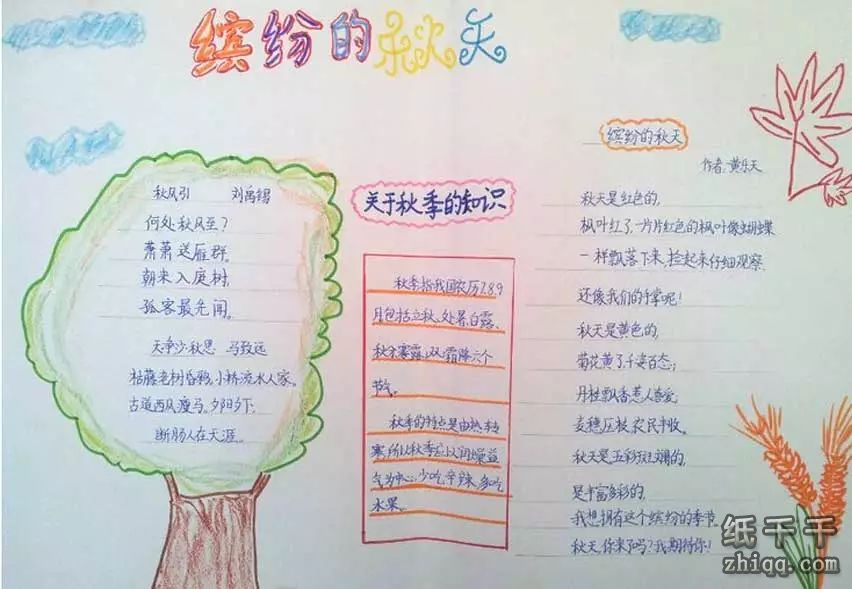 缤纷的秋天
秋风引 刘禹锡
何处秋风至?
萧萧送雁群。
朝来入庭树,
孤客最先闻。
天净沙·秋思 马致远
枯藤老树昏鸦,小桥流水人家。
古道西风瘦马。夕阳夕下,
断肠人在天涯。
关于秋季的知识
秋季指我国农历7.8.9
月包括立秋、处暑、白露、
秋分寒露、霜降六个
节气。
秋季的特点是由热转
寒,所以秋季应以润燥益
气为中心,少吃辛辣,多吃
水果。
缤纷的秋天
作者:黄乐天
秋天是红色的,
枫叶红了,一片片红色的枫叶像蝴蝶
一样飘落下来,捡起来仔细观察
还像我们的手掌呢!
秋天是黄色的,
菊花黄了,千姿百态;
丹桂飘香,惹人喜爱;
麦穗压枝,农民丰收。
秋天是五彩斑斓的,
是丰富多彩的,
我想拥有这个缤纷的季节
秋天,你来了吗?我期待你!
纸千千
zhiqq.com